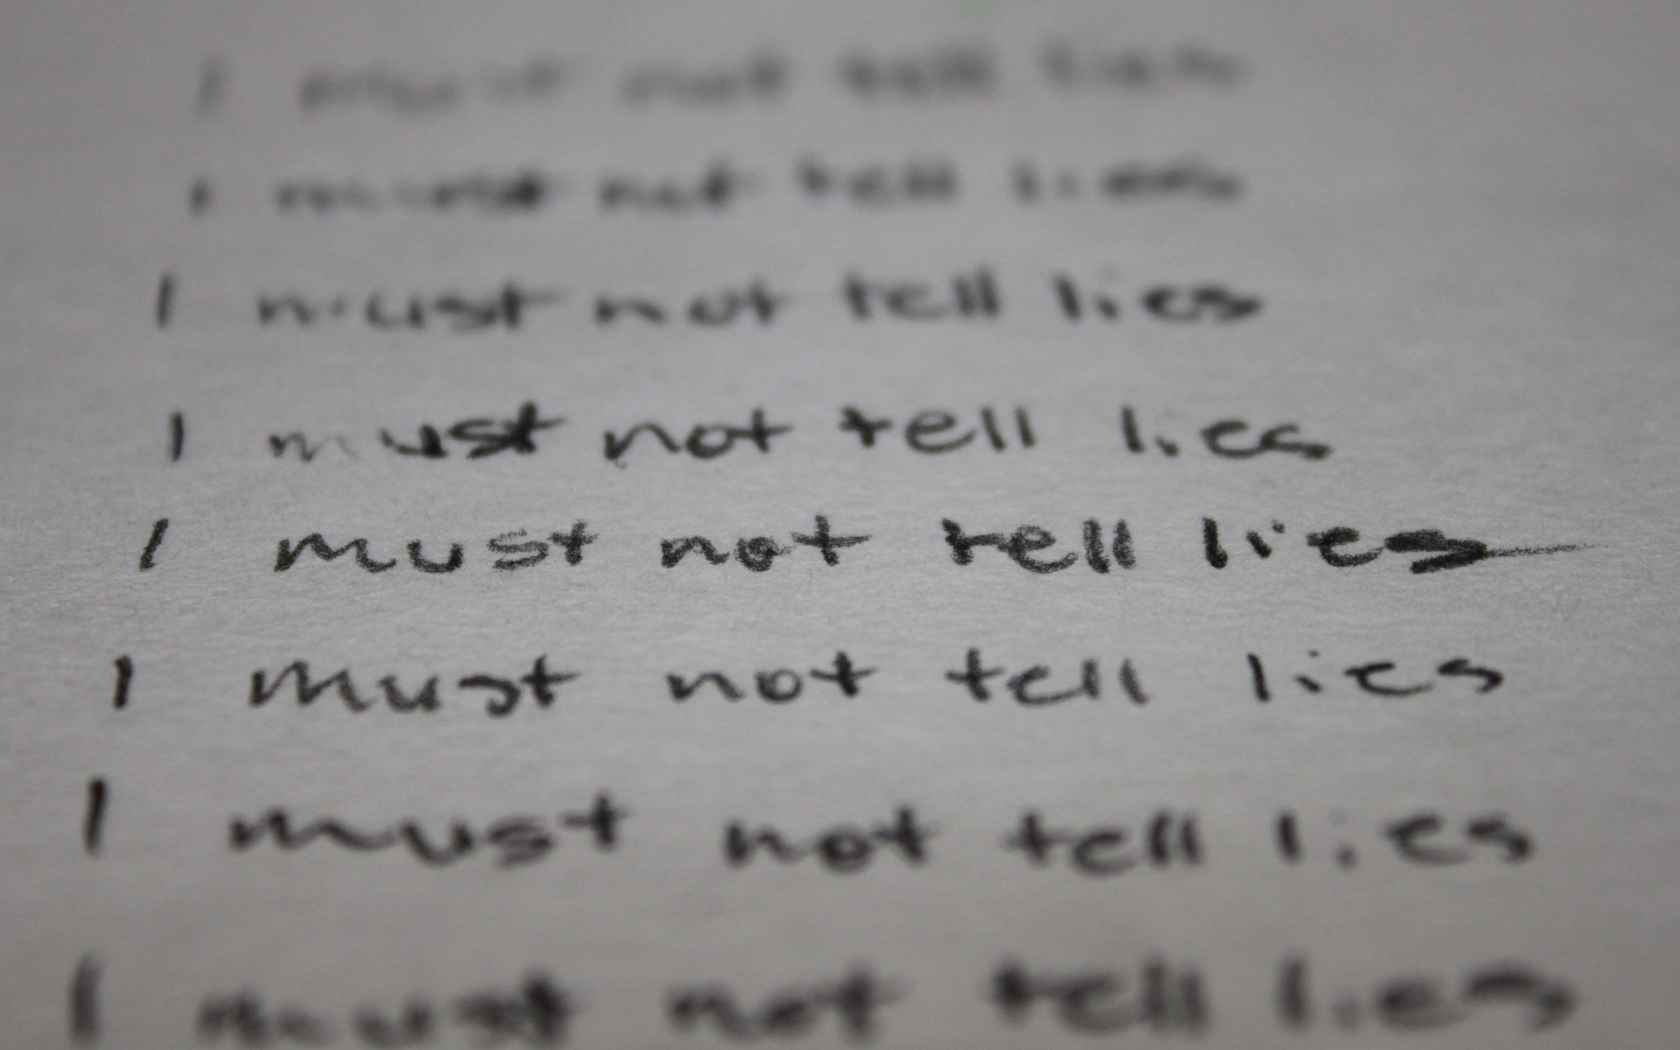 I must not tell lies
I must not tell lies
I must not tell lies
I must not tell lies
I must not tell lies
I must not tell lies
I must not tell lies
I must not tell lies